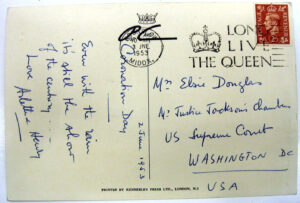 Coronation Day
2 June 1953
Even with the rain
it's still the show
of the century —
Love
Henry
3 JNE
1953
MIDDX.
LONG
LIVE
THE QUEEN
Mrs Elsie Douglas
Mr Justice Jackson's Chambers
US Supreme Court
WASHINGTON DC
USA
PRINTED BY KENNERLEY PRESS LTD., LONDON, N.1